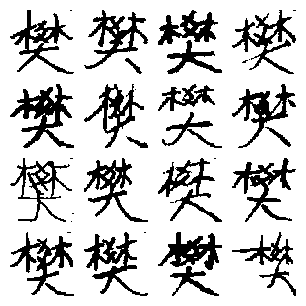 樊樊樊樊
樊樊樊樊
樊樊樊樊
樊樊樊樊